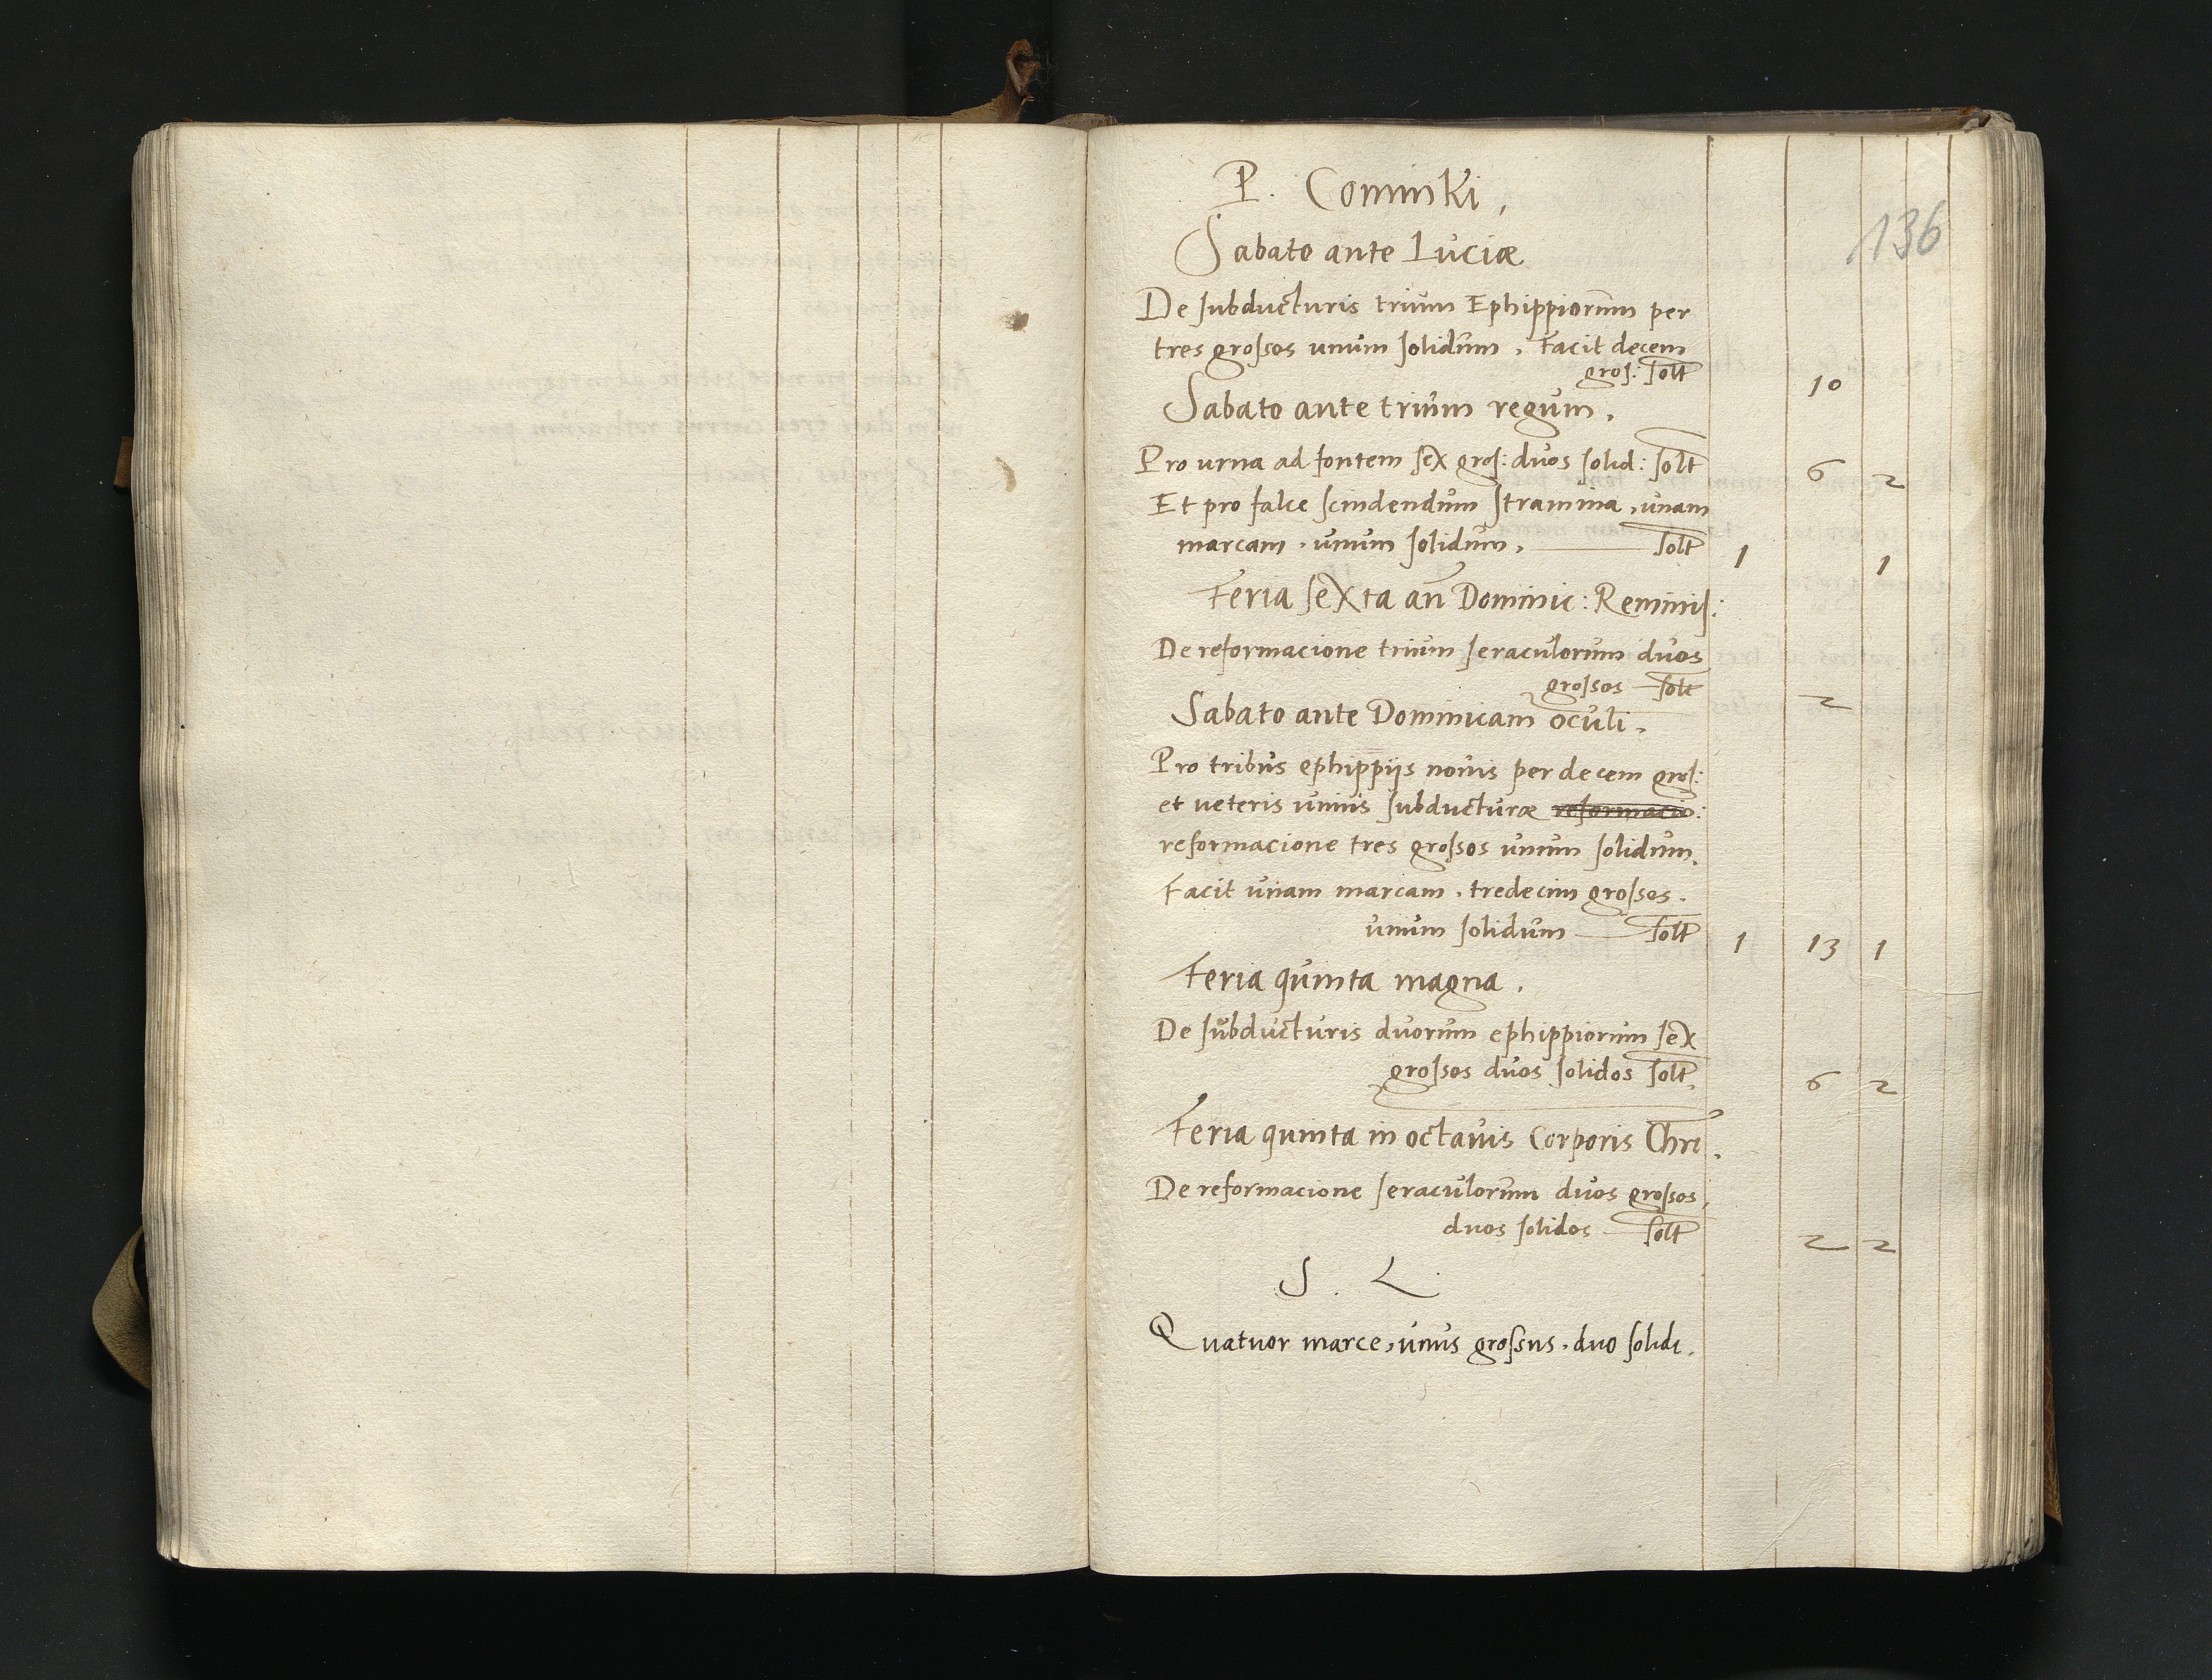 P. Cominki,
136
Sabato ante Luciæ
De subducturis trium Ephippiorum per
tres grossos unum solidum. Facit decem
gros: solt 10
Sabato ante trium regum.
Pro urna ad fontem sex gros: duos solid: solt 6 2
Et pro falce scindendum stramina, unam
marcam, unum solidum. solt 1 1
Feria sexta an Dominic: Reminis:
De reformacione trium seraculorum duos
grossos solt 2
Sabato ante Dominicam oculi.
Pro tribus ephippijs novis per decem gros:
et veteris unius subducturæ reformacio:
reformacione tres grossos unum solidum.
Facit unam marcam, tredecim grossos.
unum solidum solt 1 13 1
Feria quinta magna.
De subducturis duorum ephippiorum sex
grossos duos solidos solt. 6 2
Feria quinta in octavis Corporis Chri.
De reformacione seraculorum duos grossos,
duos solidos solt 2 2
S. L
Quatuor marce, unus grossus, duo solidi.